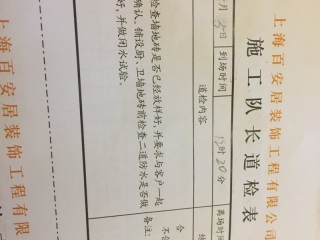 上海百安居装饰工程有限公司
施工队长道检表
月 日 到场时间 时20分 离场时间
道检内容
检查墙地砖是否已经放样好,并要求与客户一起
确认,铺设厨、卫墙地砖前检查二道防水是否做
好,并做闭水试验。
合
不合
备注:
上海百安居装饰工程有限